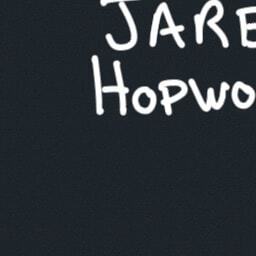 JARE
HOPWO